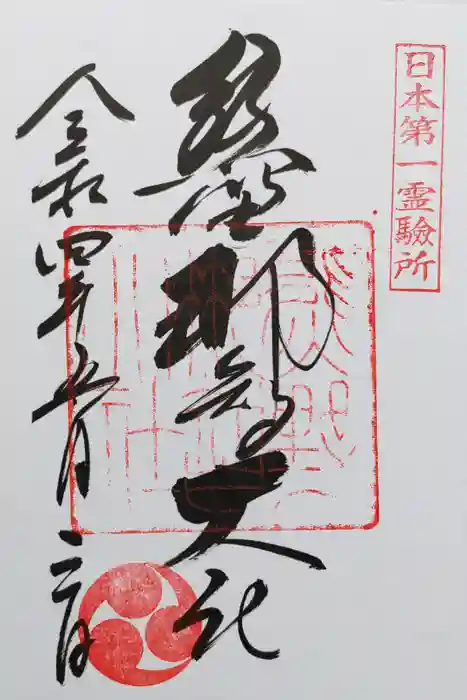 日本第一霊驗所
熊野那智大社
令和四年五月三日